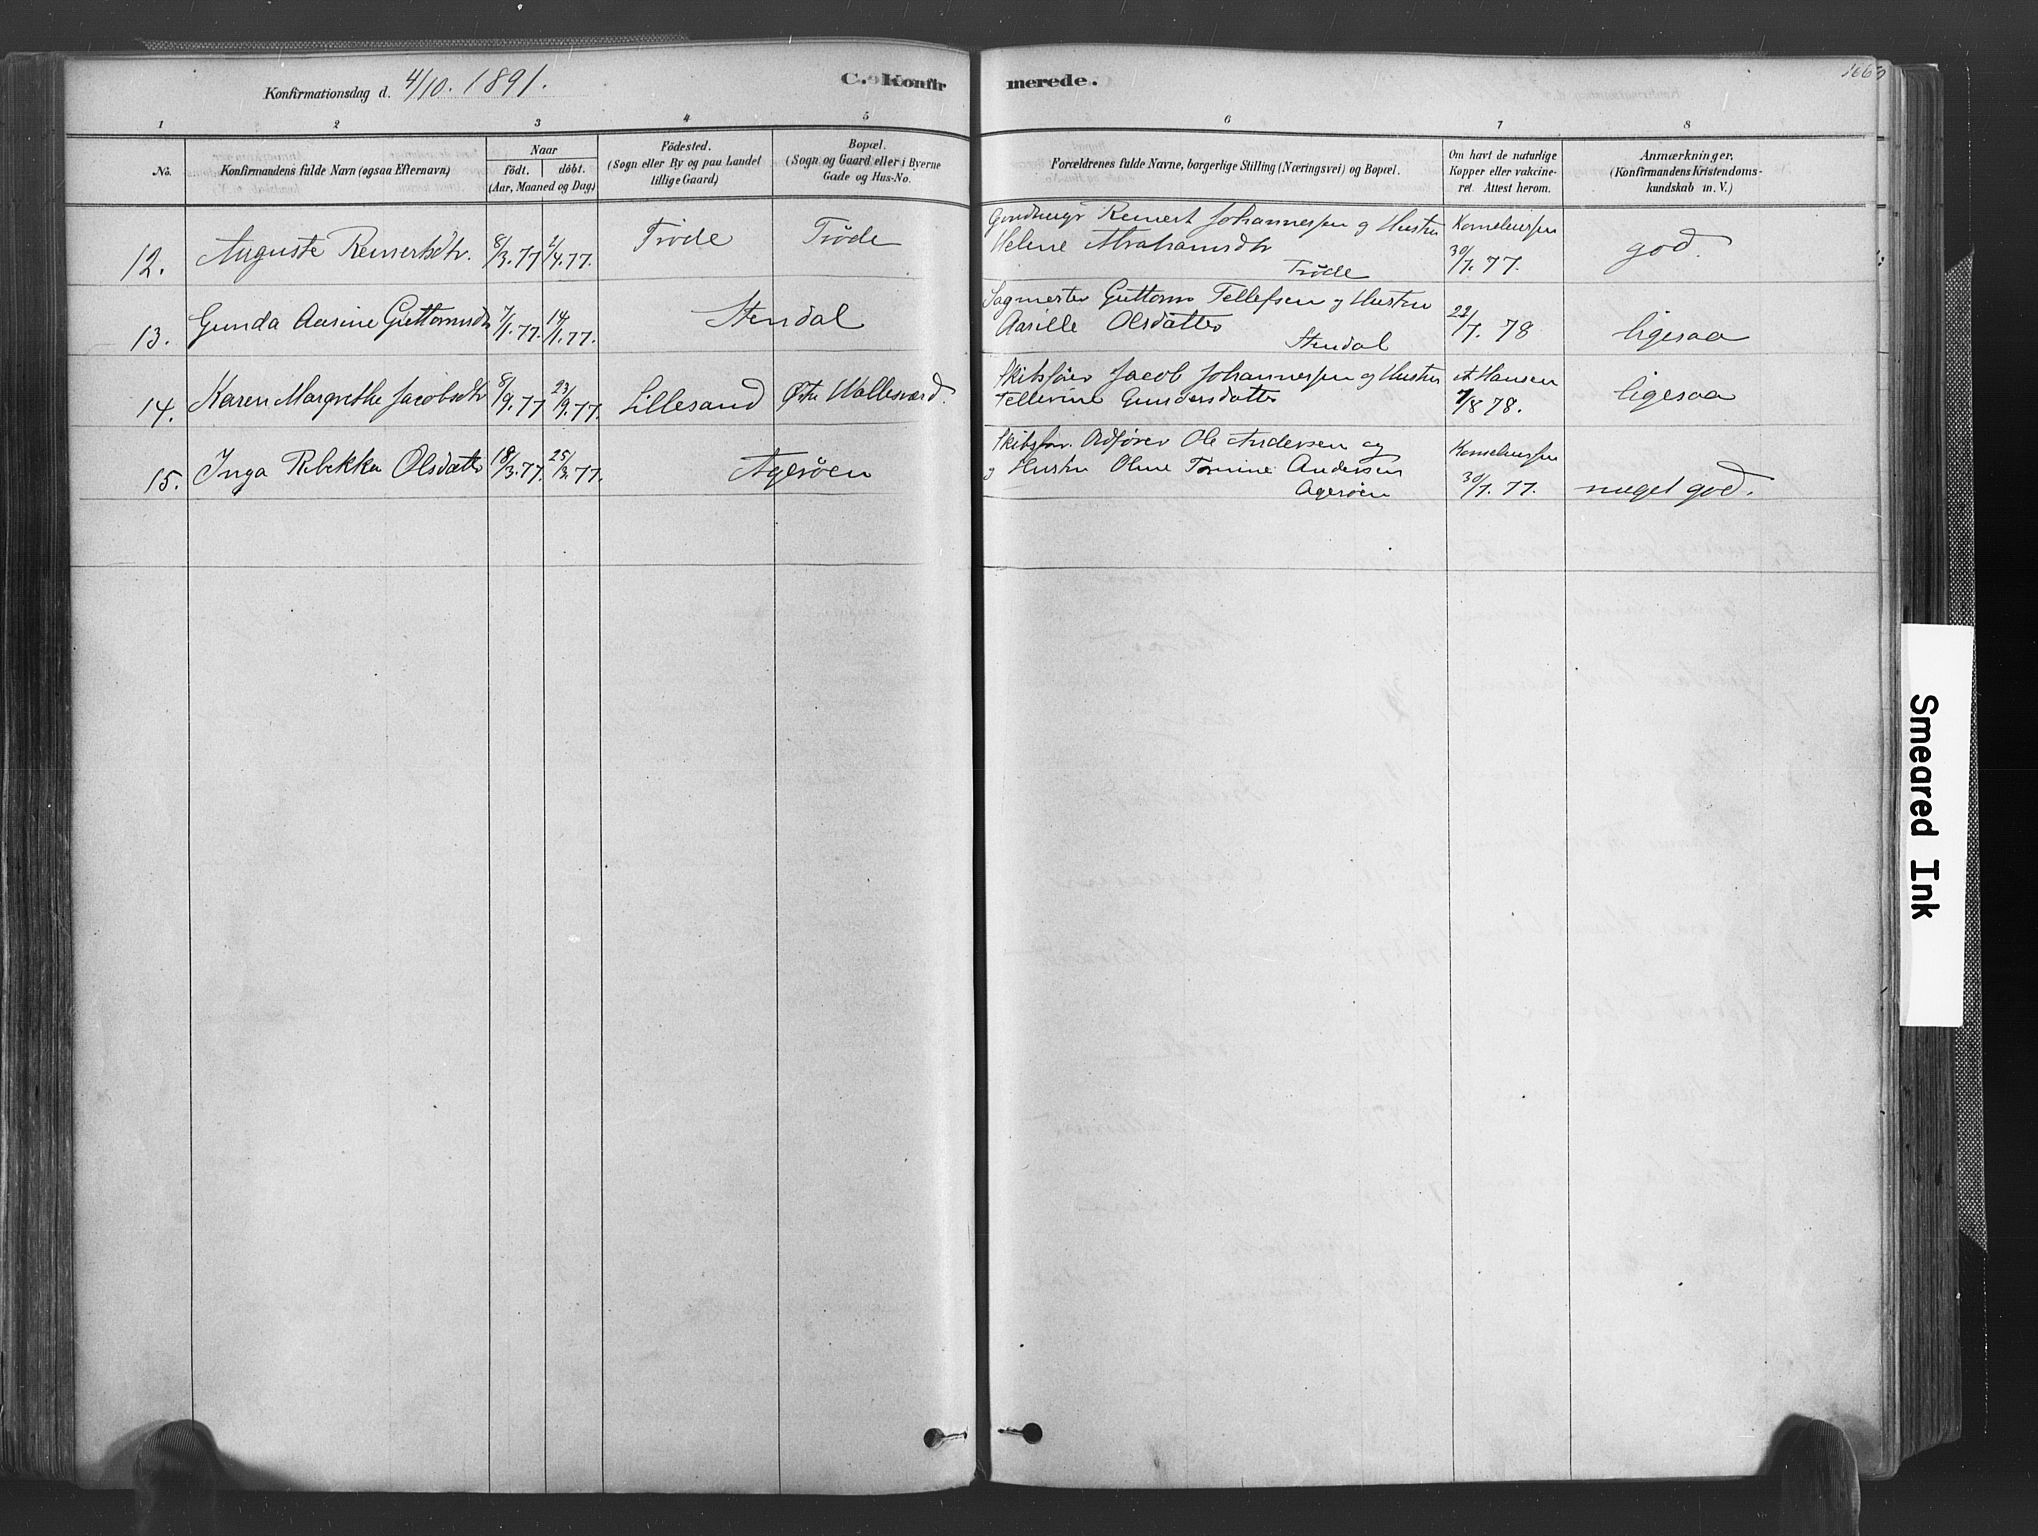 Konfirmationsdag d. 4/10. 1891.
C. Konfir merede.
1 2 3 4 5 6 7 8
No.
Konfirmandens fulde Navn (ogsaa Efternavn)
Naar
födt. döbt.
(Aar, Maaned og Dag)
Födested.
(Sogn eller By og paa Landet
tillige Gaard)
Bopæl.
(Sogn og Gaard eller i Byerne
Gade og Hus-No.
Forældrenes fulde Navne, borgerlige Stilling (Næringsvei) og Bopæl.
Om havt de naturlige
Kopper eller vakcine-
ret. Attest herom.
Anmærkninger.
(Konfirmandens Kristendoms-
kundskab m. V.)
12. Auguste Reinertsdtr. 8/3.77 2/4.77. Trøde Trøde
Reinert Johannessen og Hustru
Helene Abrahamsdtr
Trøde
Korneliussen
30/7. 77.
god.
13. Gunda Aasine Guttormsdtr 7/1.77. 14/1.77. Stendal
Sagmester Guttorm Tellefsen og Hustru
Aasille Olsdatter
Stendal
22/7. 78
ligesaa
14. Karen Margrethe Jacobsdtr 8/9.77 23/9.77. Lillesand Østre Vallesværd.
Skibsfører Jacob Johannessen og Hustru
Tellevine Gundersdatter
A Hansen
1/8 78.
ligesaa
15. Inga Rebekka Olsdatter 18/3.77. 25/3.77. Agerøen
Skibsfør. Ordfører Ole Andersen og
og Hustru Oline Tomine Andersen
Agerøen
Korneliussen
30/7. 77.
meget god.
Smeared Ink